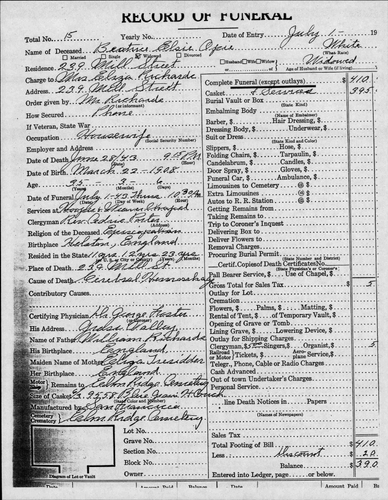 RECORD OF FUNERAL
Total No. 15 Yearly No. Date of Entry July 1- 19
Name of Deceased Beatrice Elsie White
Married Single Widowed Divorced (What Race)
Residence 239 Mill Street Husband Wife Widow of Widowed
Charge to Mrs. Eliza Richards
Address 239 Mill Street
Order given by Mr Richards
How Secured Phone
If Veteran, State War
Occupation Housewife (Social Security Number)
Employer and Address
Date of Death June 28/43 9 P.M.
Date of Birth March 22 - 1908
Age 35 3
Date of Funeral July 1-43 Thurs 10:30 A.M.
Services at
Clergyman Rev.
Religion of the Deceased Episcopalian
Birthplace England
Resided in the State
Place of Death 239 Mill St.
Cause of Death Cerebral Hemorrhage
Contributory Causes
Certifying Physician Dr. George Foster
His Address Grass Valley
Name of Father William Richards
His Birthplace England
Maiden Name of Mother Eliza
Her Birthplace England
Remains to Elm Ridge Cemetery
Size of Casket
Manufactured by San Francisco
Cemetery Crematory Elm Ridge Cemetery
Lot No.
Grave No.
Section No.
Block No.
Owner
Diagram of Lot or Vault
Complete Funeral (except outlays) $ 410.
Casket & Services 395
Burial Vault or Box
(State Kind)
Embalming Body
(Name of Embalmer)
Barber, $ Hair Dressing, $
Dressing Body, $ Underwear, $
Suit or Dress
(State Kind and Color)
Slippers, $ Hose, $
Folding Chairs, $ Tarpaulin, $
Candelabrum, $ Candles, $
Door Spray, $ Gloves, $
Funeral Car, $ Ambulance, $
Limousines to Cemetery @ $
Extra Limousines @ $
Autos to R. R. Station @ $
Getting Remains from
Taking Remains to
Trip to Coroner's Inquest
Delivering Box to
Deliver Flowers to
Removal Charges
Procuring Burial Permit
(State Number and District)
Certif. Copies of Death Certificates No.
(State Physician's or Coroner's)
Pall Bearer Service, $ Use of Chapel, $
Gross Total for Sales Tax $ 5
Outlay for Lot
Cremation
Flowers, $ Palms, $ Matting, $
Rental of Tent, $ of Temporary Vault, $
Opening of Grave or Tomb
Lining Grave, $ Lowering Device, $
Outlay for Shipping Charges
Clergyman, $ 5 Singers, $ Organist, $ 5
Railroad or Motor Tickets, $ Aeroplane Service, $
Telegr., Phone, Cable or Radio Charges
Cash Advanced
Out of town Undertaker's Charges
Personal Service
line Death Notices in Papers
(Names of Newspapers)
Sales Tax
Total Footing of Bill $ 410.
Less Discount $ 20.
Balance $ 390.
Entered into Ledger, page or below.
Amount Paid Date Amount Paid